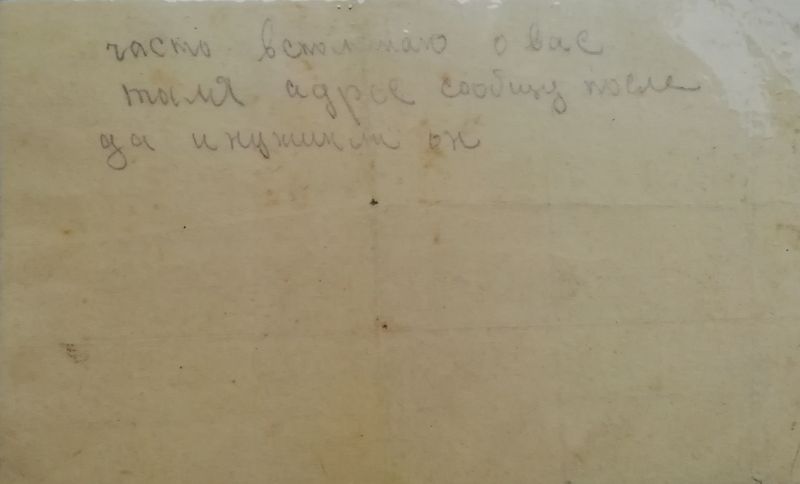 часто вспоминаю о вас
тамя адрес сообщу после
да и нужн ли он